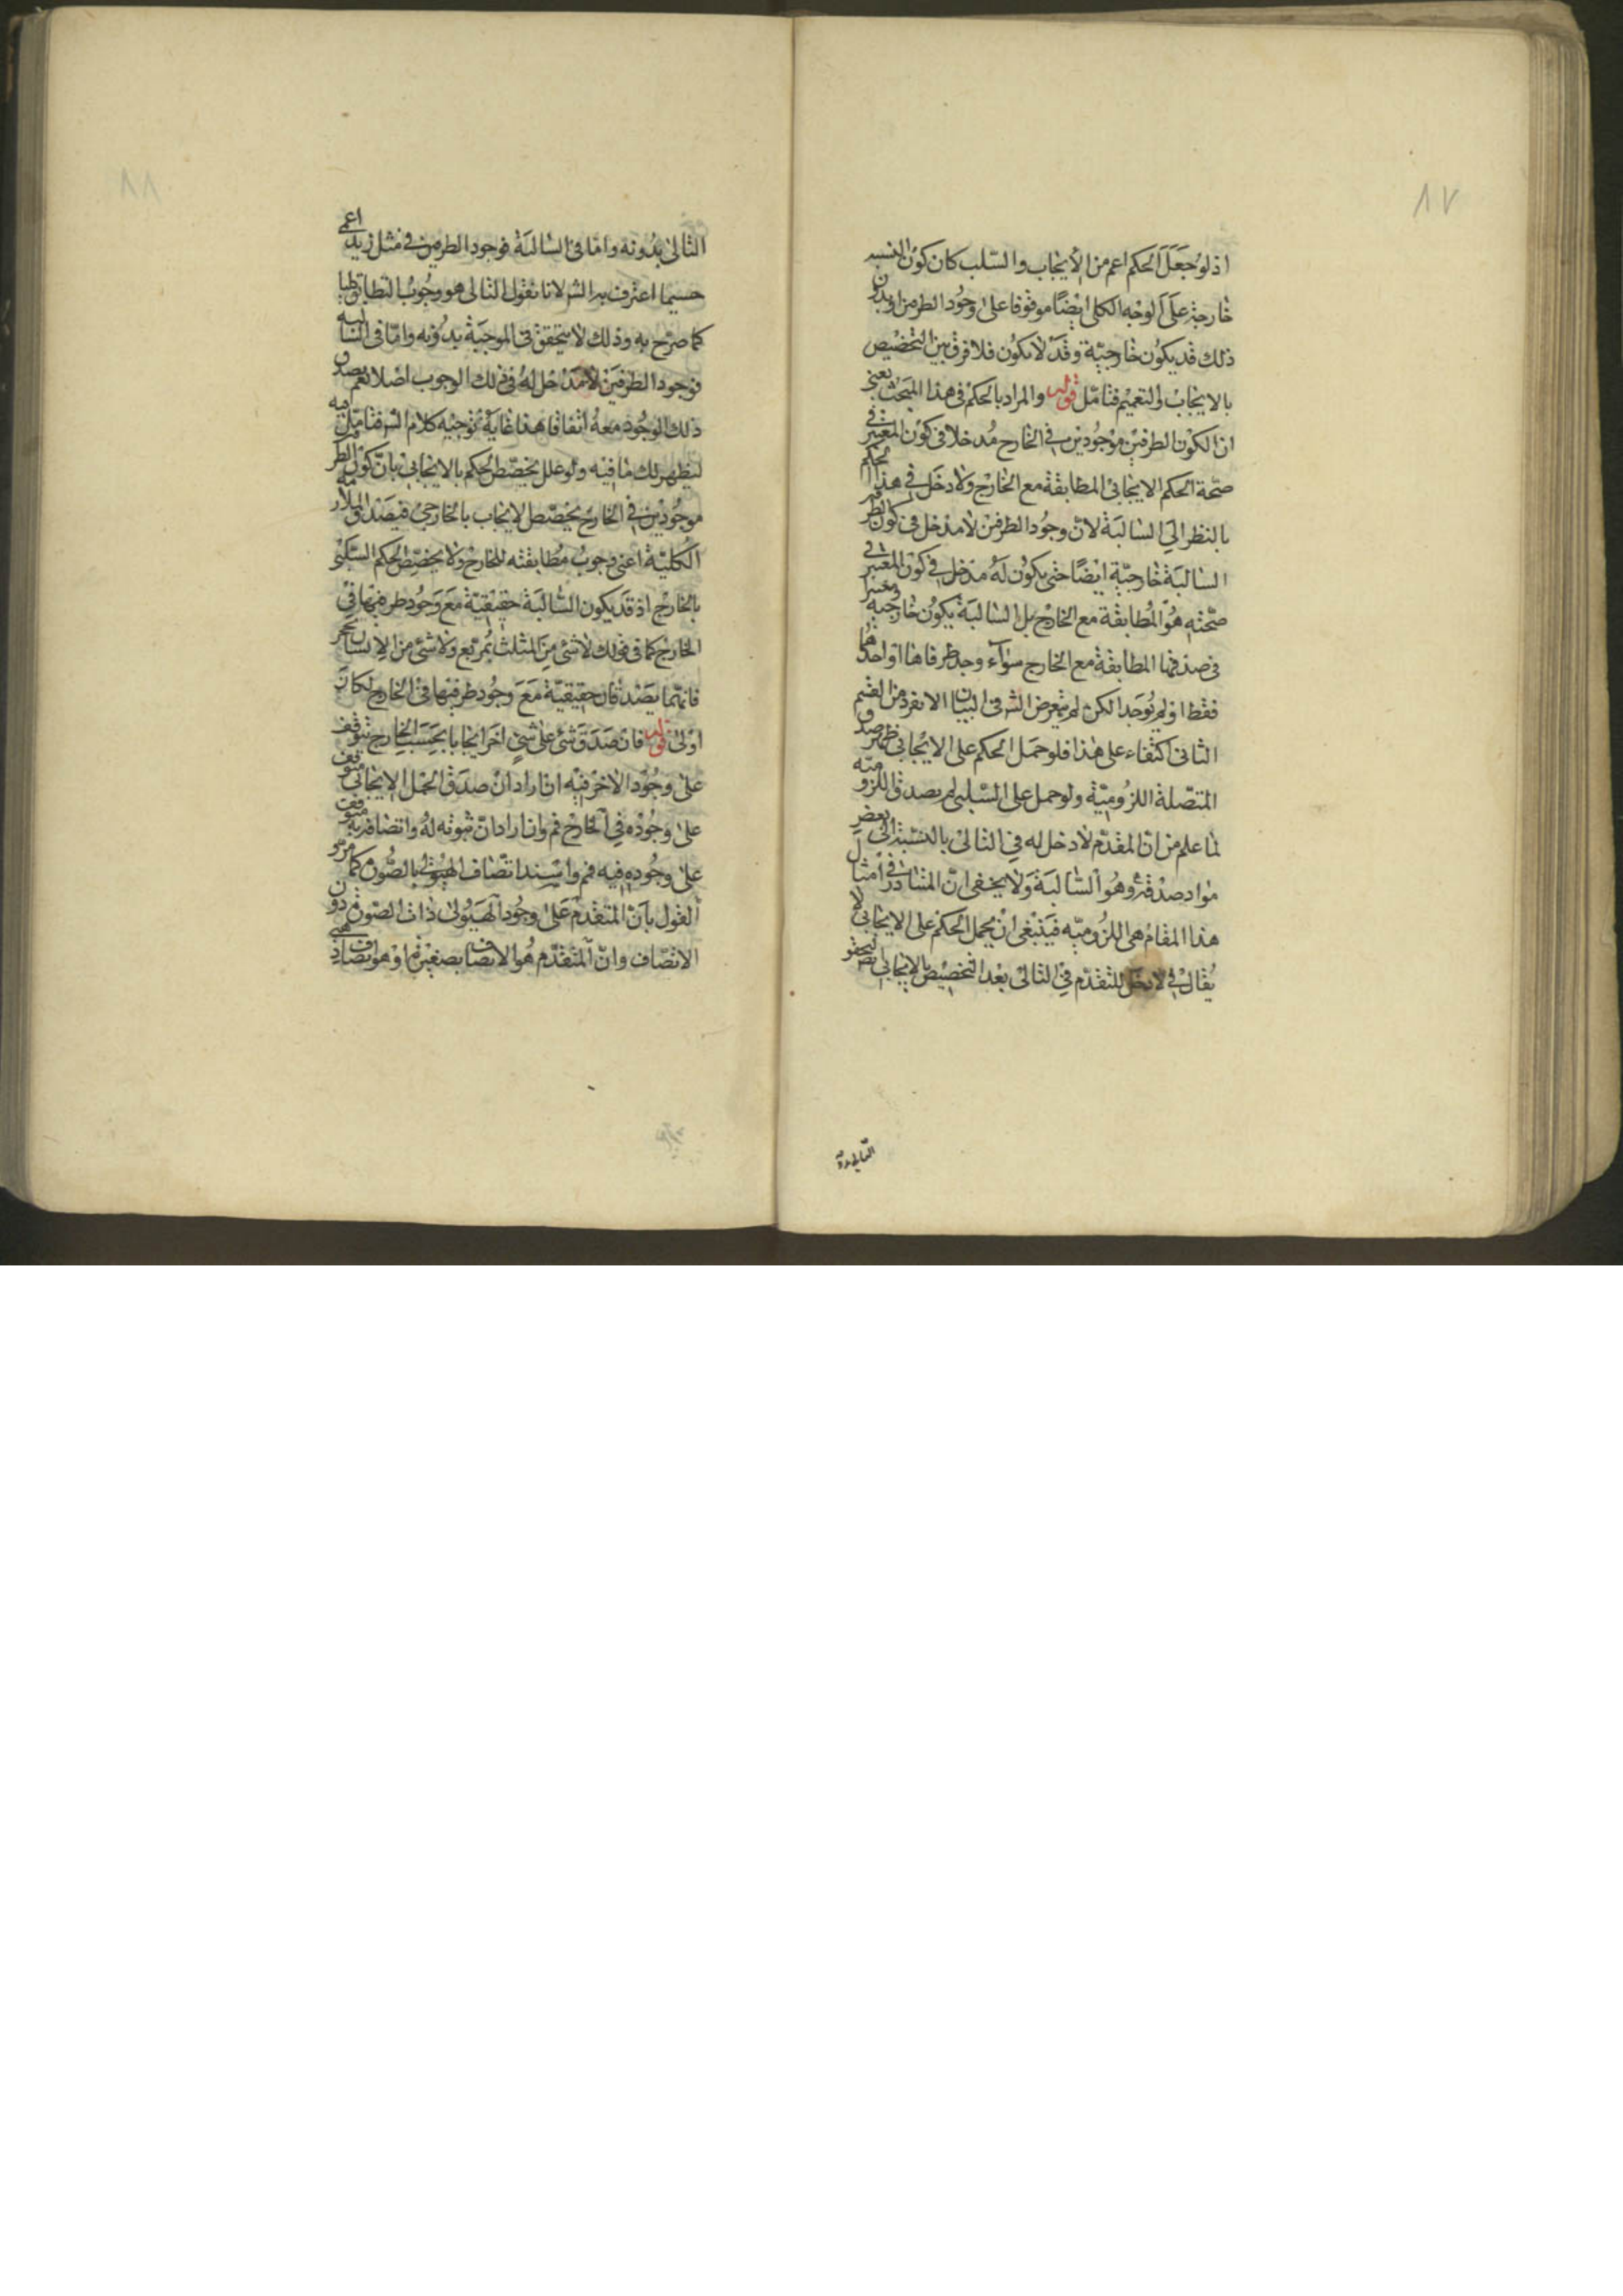 ٨٧
اذ لو جعل الحكم اعم من الايجاب والسلب كان كون النسبة
خارجية على الوجه الكلى ايضا موقوفا على وجود الطرفين او بدون
ذلك قد يكون خارجية وقد لا يكون فلا فرق بين التخصيص
بالايجاب والتعميم فتأمل قوله والمراد بالحكم فى هذا المبحث يعنى
ان لكون الطرفين موجودين فى الخارج مدخلا فى كون المعتبر فى
صحة الحكم الايجابى المطابقة مع الخارج ولا دخل فى هذا الحكم
بالنظر الى السالبة لان وجود الطرفين لا مدخل فى كون الطرفين
السالبة خارجية ايضا حتى يكون له مدخل فى كون المعتبر فى
صحته هو المطابقة مع الخارج بل السالبة يكون خارجية
فى صدقها المطابقة مع الخارج سواء وجد طرفاها او احدهما
فقط او لم يوجد الكن لم يتعرض الش فى البيان الا لفرد من القسم
الثانى اكتفاء على هذا فلو حمل الحكم على الايجابى ظهر صدق
المتصلة اللزومية ولو حمل على السلبى لم يصدق اللزومية
لما علم من ان المقدم لا دخل له فى التالى بالنسبة الى بعض
مواد صدقه وهو السالبة ولا يخفى ان المتبادر فى امثال
هذا المقام هى اللزومية فينبغى ان يحمل الحكم على الايجابى لا
يقال لا دخل للمقدم فى التالى بعد التخصيص بالايجابى لتحقق
٨٨
التالى بدونه واما فى السالبة فوجود الطرفين فى مثل زيد اعمى
حسبما اعترف به الش لانا نقول التالى هو وجوب التطابق
كما صرح به وذلك لا يتحقق فى الموجبة بدونه واما فى السالبة
فوجود الطرفين لا مدخل له فى ذلك الوجوب اصلا نعم يصدق
ذلك الوجود معه اتفاقا هذا غاية توجيه كلام الش فتأمل فيه
ليظهر لك ما فيه ولو علل تخصيص الحكم بالايجابى بان كون الطرفين
موجودين فى الخارج يخصص الايجاب بالخارجى فيصدق الملازمة
الكلية اعنى وجوب مطابقته للخارج ولا يخصص الحكم السلبى
بالخارج اذ قد يكون السالبة حقيقية مع وجود طرفيها فى
الخارج كما فى قولك لا شئ من المثلث بمربع ولا شئ من الانسان بحجر
فانهما يصدقان حقيقية مع وجود طرفيها فى الخارج لكان
اولى قوله فان صدق شئ على شئ اخر ايجابا بحسب الخارج يتوقف
على وجود الاخر فيه ان اراد ان صدق الحمل الايجابى متوقف
على وجوده فى الخارج فم وان اراد ان ثبوته له واتصافه به متوقف
على وجوده فيه فم واسند اتصاف الهيولى بالصورة كما مر
القول بان المتقدم على وجود الهيولى ذات الصورة دون
الاتصاف وان المتقدم هو الاتصاف بصفة